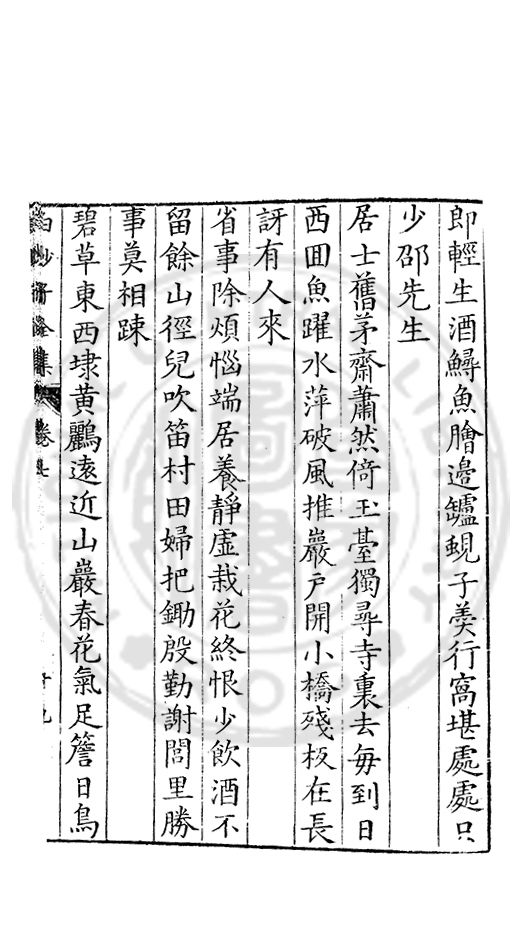 即輕生酒鱘魚膾邊罏蜆子羮行窩堪處處只
少邵先生
居士舊茅齋蕭然倚玉臺獨尋寺裏去每到日
西囬魚躍水萍破風推巖戸開小橋殘板在長
訝有人來
省事除煩惱端居養靜虛栽花終恨少飲酒不
留餘山徑兒吹笛村田婦把鋤殷勤謝閭里勝
事莫相踈
碧草東西埭黃鸝遠近山巖春花氣足簷日鳥
白沙子全集 卷七 十九